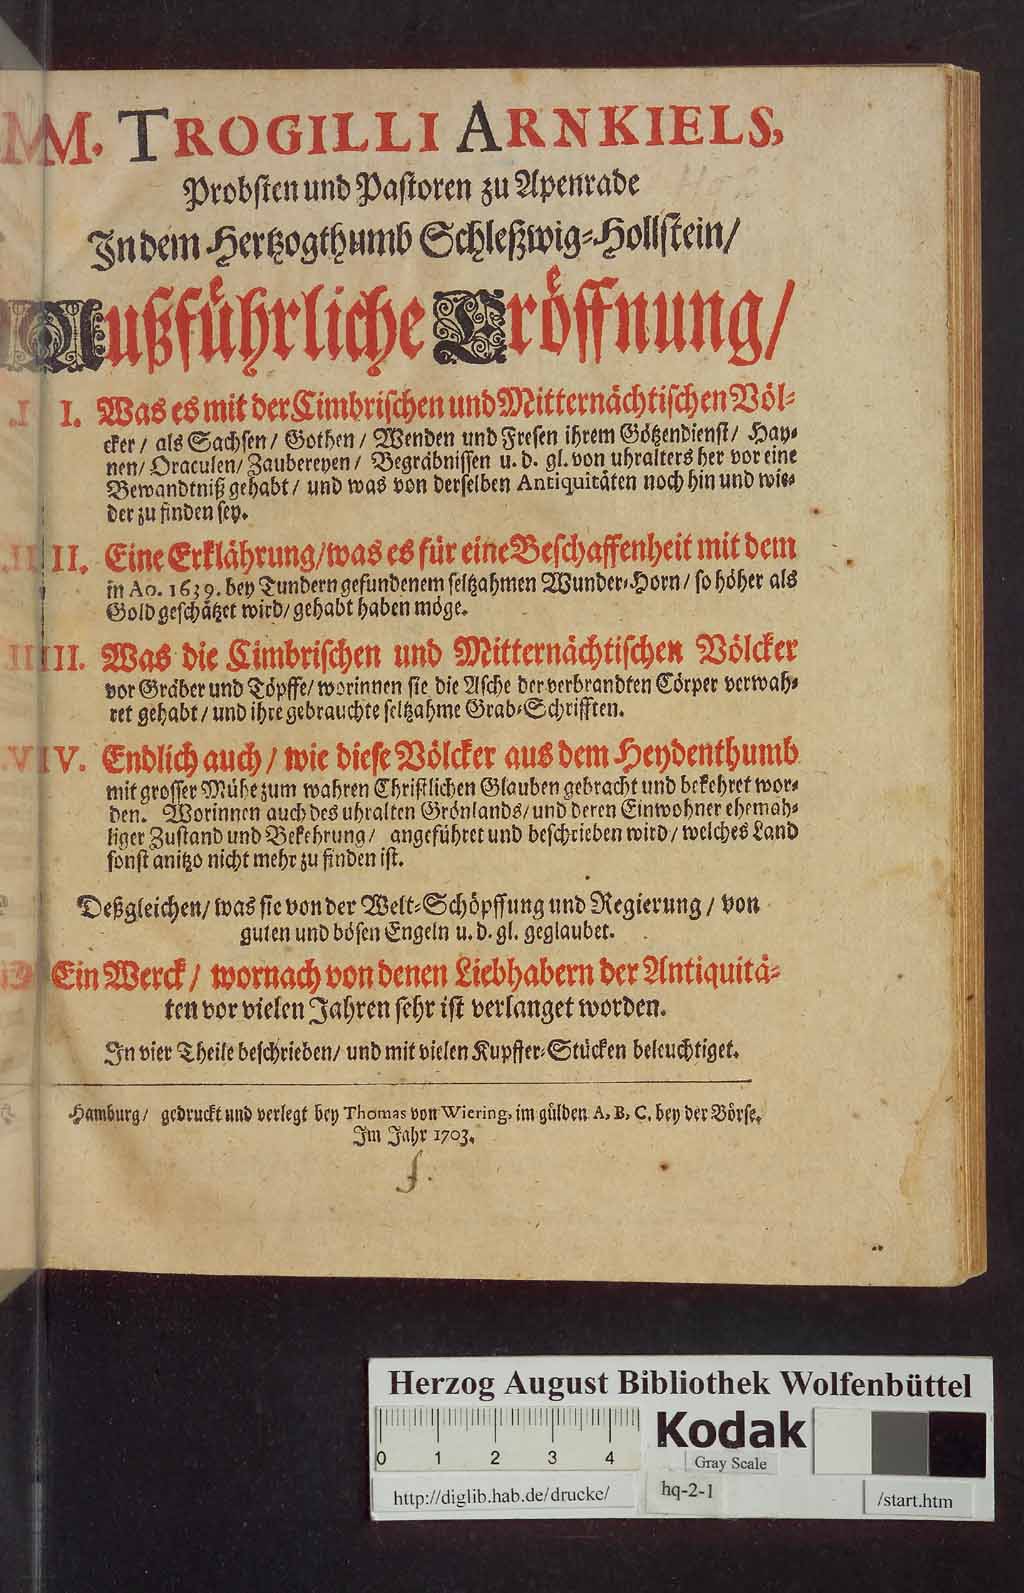 M. TROGILLI ARNKIELS,
Probsten und Pastoren zu Apenrade
In dem Hertzogthumb Schleßwig-Hollstein/
Außführliche Eröffnung/
I. Was es mit der Cimbrischen und Mitternächtischen Völ-
cker/ als Sachsen/ Gothen/ Wenden und Fresen ihrem Götzendienst/ Hay-
nen/ Oraculen/ Zaubereyen/ Begräbnissen u. d. gl. von uhralters her vor eine
Bewandtniß gehabt/ und was von derselben Antiquitäten noch hin und wie-
der zu finden sey.
II. Eine Erklährung/ was es für eine Beschaffenheit mit dem
in Ao. 1639. bey Tundern gefundenem seltzahmen Wunder-Horn/ so höher als
Gold geschätzet wird/ gehabt haben möge.
III. Was die Cimbrischen und Mitternächtischen Völcker
vor Gräber und Töpffe/ worinnen sie die Asche der verbrandten Cörper verwah-
ret gehabt/ und ihre gebrauchte seltzahme Grab-Schrifften.
IV. Endlich auch/ wie diese Völcker aus dem Heydenthumb
mit grosser Mühe zum wahren Christlichen Glauben gebracht und bekehret wor-
den. Worinnen auch des uhralten Grönlands/ und deren Einwohner ehemah-
liger Zustand und Bekehrung/ angeführet und beschrieben wird/ welches Land
sonst anitzo nicht mehr zu finden ist.
Deßgleichen/ was sie von der Welt-Schöpffung und Regierung/ von
guten und bösen Engeln u. d. gl. geglaubet.
Ein Werck/ wornach von denen Liebhabern der Antiquitä-
ten vor vielen Jahren sehr ist verlanget worden.
In vier Theile beschrieben/ und mit vielen Kupffer-Stücken beleuchtiget.
Hamburg/ gedruckt und verlegt bey Thomas von Wiering, im gülden A, B, C, bey der Börse.
Im Jahr 1703.
f.
Herzog August Bibliothek Wolfenbüttel
Kodak
0 1 2 3 4
Gray Scale
http://diglib.hab.de/drucke/ hq-2-1 /start.htm